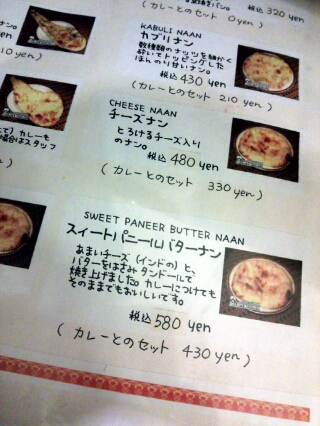 320 yen
(カレーとのセット 0 yen)
KABULI NAAN
カブリナン
数種類のナッツを細かく
砕いてトッピングした
ほんのり甘いナン。
税込 430 yen
(カレーとのセット 210 yen)
CHEESE NAAN
チーズナン
とろけるチーズ入り
のナン。
税込 480 yen
(カレーとのセット 330 yen)
10 yen)
カレーも
場合はスタッフ
SWEET PANEER BUTTER NAAN
スイートパニールバターナン
あまいチーズ(インドの)と、
バターをはさみタンドールで
焼き上げました。カレーにつけても
そのままでもおいしいです。
税込 580 yen
(カレーとのセット 430 yen)